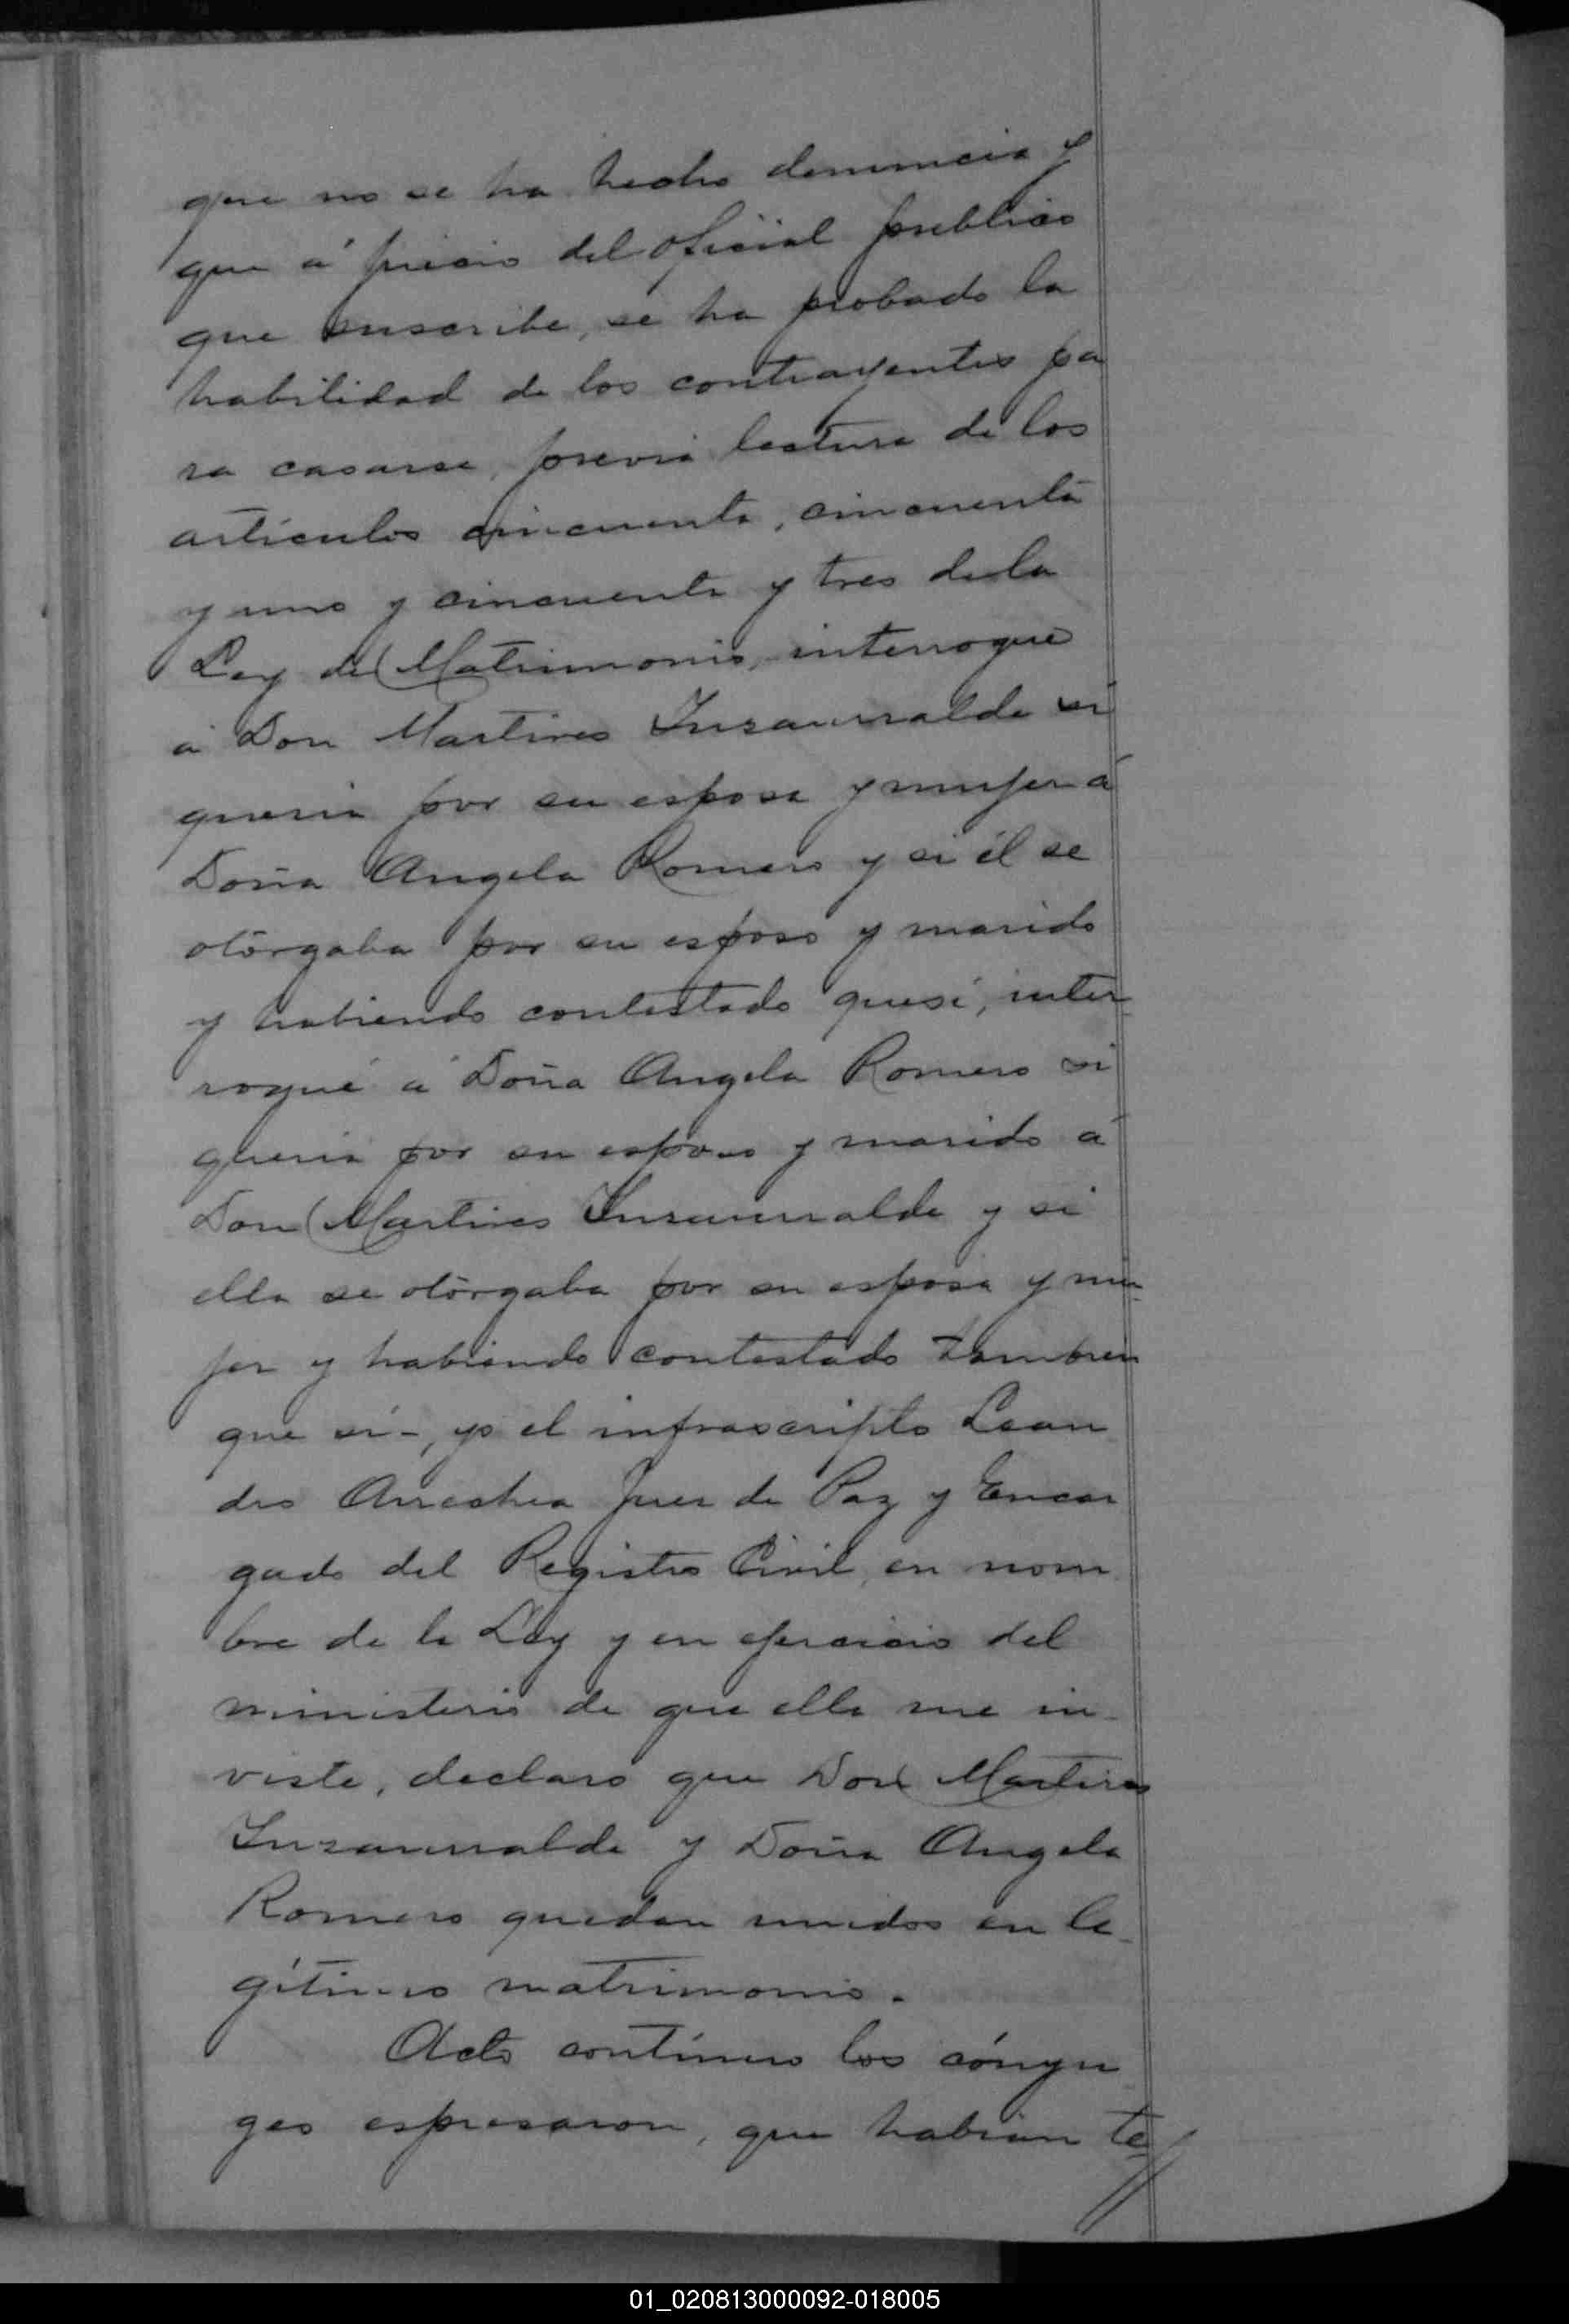 que no se ha hecho denuncia y
que á juicio del oficial publico
que suscribe, se ha probado la
habilidad de los contrayentes pa
ra casarse, previa lectura de los
artículos cincuenta, cincuenta
y uno y cincuenta y tres de la
Ley de Matrimonio, interrogué
á Don Martires Insaurralde si
queria por su esposa y mujer á
Doña Angela Romero y si él se
otorgaba por su esposo y marido
y habiendo contestado que sí, inter
rogué á Doña Angela Romero si
queria por su esposo y marido á
Don Martires Insaurralde y si
ella se otorgaba por su esposa y mu-
jer y habiendo contestado tambien
que sí-, yo el infrascripto Lean
dro Arrechea Juez de Paz y Encar
gado del Registro Civil, en nom
bre de la Ley y en ejercicio del
ministerio de que ella me in-
viste, declaro que Don Martires
Insaurralde y Doña Angela
Romero quedan unidos en le-
gítimo matrimonio.
Acto contínuo los cónyu
ges espresaron, que habian te
01_020813000092-018005